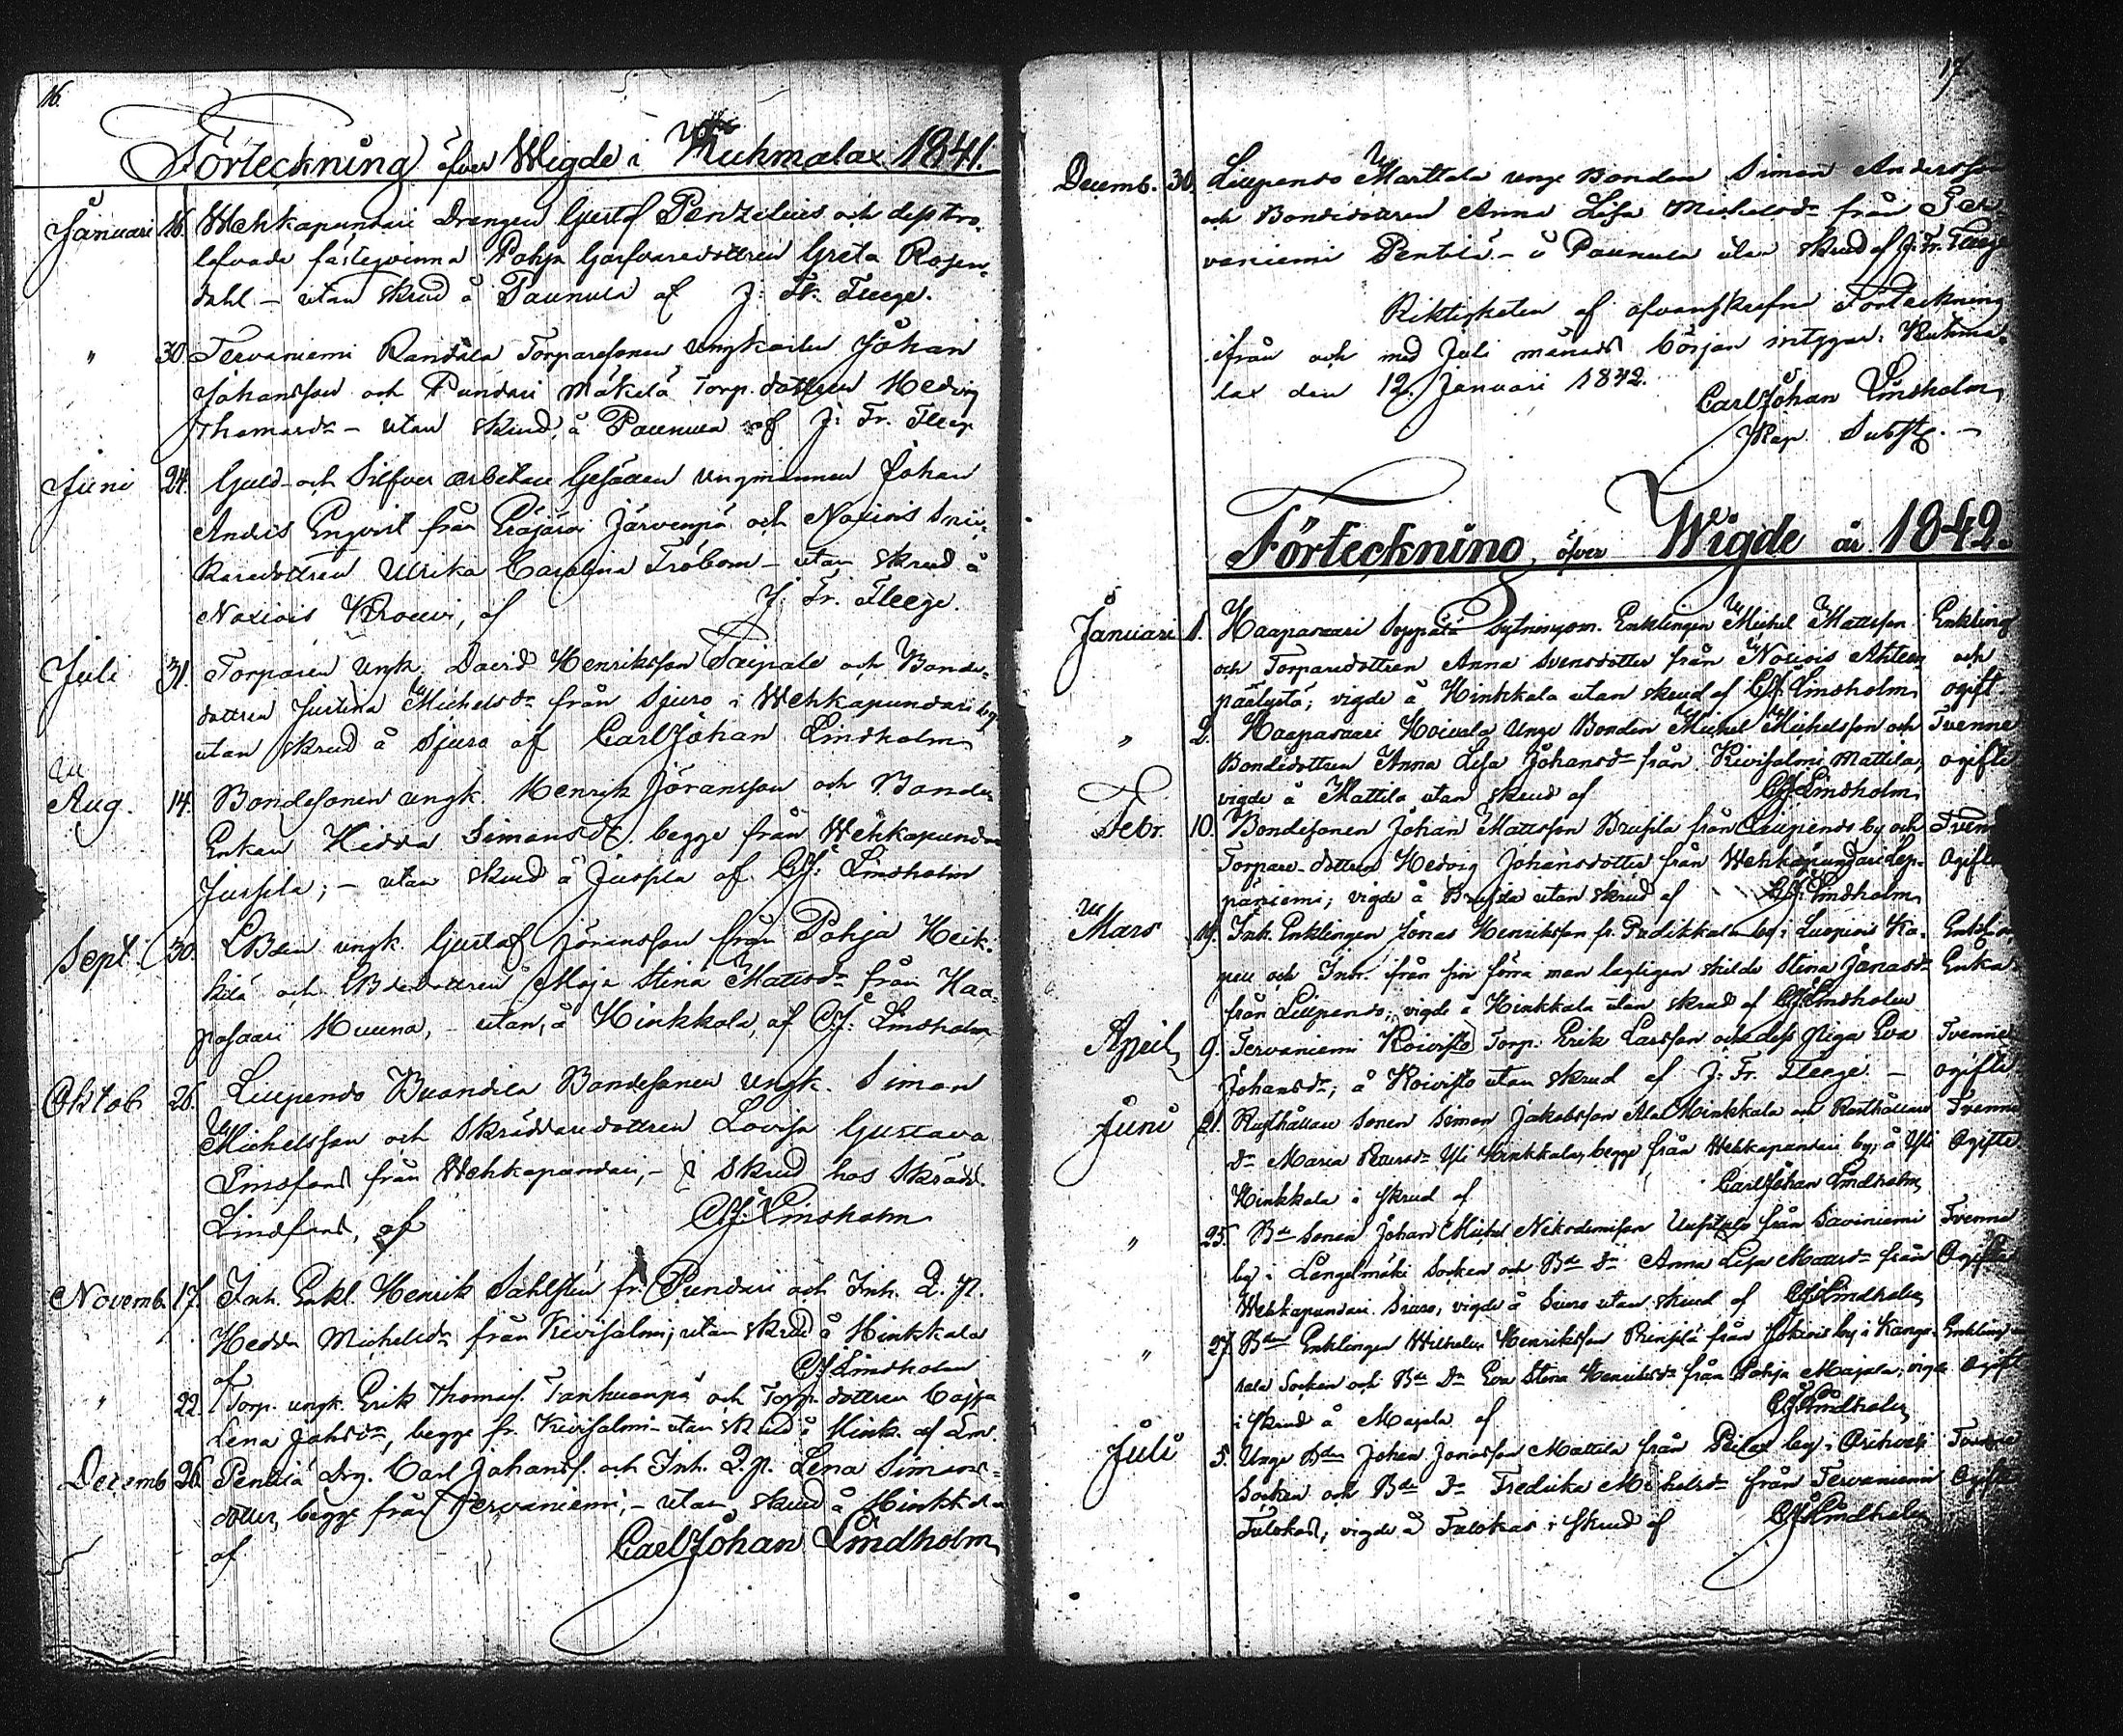 16.
Förteckning öfver Wigde i Kuhmalax 1841.
Januari 16. Wehkapundari Drengen Gustaf Penzelius och dess tro-
lofvade fästeqvinna Pohja Garfvaredottren Greta Rosen-
dahl – utan skrud å Paunula af J: Fr: Fleege.
" 30. Tervaniemi Randala Torparesonen Ungkarlen Johan
Johansson och Pundari Mäkelä Torp. dottren Hedvig
Thomasdr – utan skrud, å Paunula af J: Fr. Fleege
Juni 24. Guld- och Silfver arbetare Gesällen Ungmannen Johan
Anders Enqvist från Eräjärvi Järvenpä och Noxiois Snic-
karedottren Ulrika Carolina Fröbom – utan skrud å
Noxiois Krouvi, af J: Fr. Fleege.
Juli 31. Torparen Ungk. David Henriksson Taipale och Bonde-
dottren Justina Michelsdr från Sjuro i Wehkapundari by
utan skrud å Sjuro af Carl Johan Lindholm
Aug. 14. Bondesonen ungk. Henrik Jöransson och Bonde
Enkan Hedda Simonsdr. begge från Wehkapundari
Jussila; – utan skrud å Jussila af CJ: Lindholm
Sept. 30. Bden ungk. Gustaf Jöransson från Pohja Heik-
kilä och Bdedottren Maja Stina Mattsdr från Haa-
pasaari Huuna, – utan, å Hinkkala, af CJ: Lindholm
Oktob 26. Liupendo Bvandila Bondesonen ungk. Simon
Michelsson och Skräddaredottren Lovisa Gustava
Lindfors från Wehkapundari, – i skrud hos Skrädd.
Lindfors, af CJ: Lindholm
Novemb. 17. Inh. Enkl. Henrik Sahlsten fr. Pundari och Inh. Q. p.
Hedda Michelsdr från Kivisalmi; utan skrud å Hinkkala
af CJ Lindholm
" 22. Torp. ungk. Erik Thomass. Tanhuanpä och Torp. dottren Cajsa
Lena Johsdr, begge fr. Kivisalmi – utan skrud å Hink. af Lm.
Decemb 26. Pentilä Drg. Carl Johanss. och Inh. Q. p. Lena Simons-
dotter, begge från Tervaniemi, – utan skrud å Hinkkala
af Carl Johan Lindholm
17.
Decemb. 30. Liupendo Marttala unge Bonden Simon Andersson
och Bondedottren Anna Lisa Michelsdr från Ter-
vaniemi Pentilä – å Paunula utan skrud af J: Fr. Fleege
Riktigheten af ofvanskrefne Förteckning
ifrån och med Juli månads början intygar: Kuhma-
lax den 12. Januari 1842. Carl Johan Lindholm
Kap. Subst.
Förteckning öfver Wigde år 1842.
Januari 1. Haapasaari Seppälä Sytningsm. Enklingen Michel Mattsson Enkling
och Torparedottren Anna Svensdotter från Noxiois Ahlen och
päälystö; vigde å Hinkkala utan skrud af CJ Lindholm ogift
" 2. Haapasaari Hoivala Unge Bonden Michel Michelsson och Tvenne
Bondedottren Anna Lisa Johansdr från Kivisalmi Mattila, ogifte
vigde å Mattila utan skrud af CJ Lindholm
Febr. 10. Bondesonen Johan Mattsson Brusila från Liupendo by och Tvenne
Torpare-dottren Hedvig Johansdotter från Wehkapundari Lep- Ogifte
päniemi; vigde å Brusila utan skrud af CJ Lindholm
Mars 19. Inh. Enklingen Jonas Henriksson fr. Pudikkala by i Luopiois Ka- Enkling
pell och Inh. ifrån sin förra man lagligen skilde Stina Jonasdr Enka
från Liupendo; vigde å Hinkkala utan skrud af CJ Lindholm
April 9. Tervaniemi Koivisto Torp. Erik Larsson och dess piga Eva Tvenne
Johansdr; å Koivisto utan skrud af J: Fr. Fleege – ogifte
Juni 21. Rusthållare Sonen Simon Jakobsson Ala Hinkkala och Rusthållare Tvenne
Dr Maria Pettersdr Yli Hinkkala, begge från Wehkapundari by, å Yli Ogifte
Hinkkala i skrud af Carl Johan Lindholm
" 25. Bde Sonen Johan Michel Nikodemisson från Saviniemi Tvenne
by i Längelmäki Socken och Bde Dr Anna Lisa Mattsdr från Ogifte
Wehkapundari Siuro, vigde å Siuro utan skrud af CJ Lindholm
" 27. Bden Enklingen Wilhelm Henriksson från by i Kanga- Enkling
sala Socken och Bde Dr Eva Stina Henriksdr från Pohja Majala, vigde Ogift
i skrud å Majala af CJ Lindholm
Juli 5. Unge Bden Johan Jonasson Mattila från by i Orihvesi Tvenne
Socken och Bde Dr Fredrika Michelsdr från Tervaniemi Ogifte
Tulokas; vigde å Tulokas i skrud af CJ Lindholm